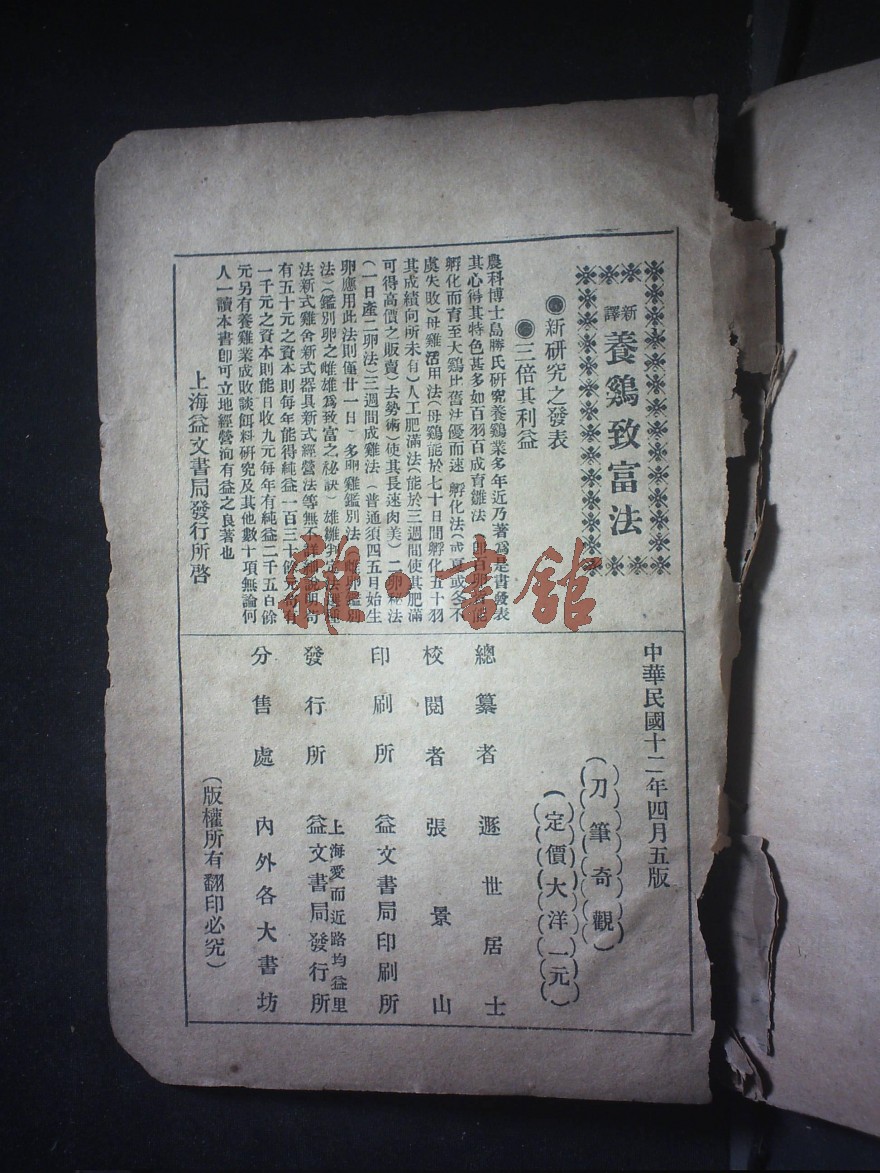 新譯
養鷄致富法
●新研究之發表
●三倍其利益
農科博士島勝氏研究養鷄業多年近乃著爲是書發表
其心得其特色甚多如百羽百成育雛法
孵化而育至大鷄比舊法優而速 孵化法(或夏或冬不
虞失敗)母雞活用法(母鷄能於七十日間孵化五十羽
其成績向所未有)人工肥滿法(能於三週間使其肥滿
可得高價之販賣)去勢術(使其長速肉美)二卵秘法
(一日產二卵法)三週間成雞法(普通須四五月始生
卵應用此法則僅廿一日 多卵雞鑑別法
法)(鑑別卵之雌雄爲致富之秘訣)雄雛
法新式雞舍新式器具新式經營法等無不詳細說明
有五十元之資本則每年能得純益一百三十餘元
一千元之資本則能日收九元每年有純益二千五百餘
元另有養雞業成敗談餌料研究及其他數十項無論何
人一讀本書卽可立地經營洵有益之良著也
上海益文書局發行所啓
中華民國十二年四月五版
(刀筆奇觀)
(定價大洋一元)
總纂者 遯世居士
校閱者 張景山
印刷所 益文書局印刷所
發行所 上海愛而近路均益里
益文書局發行所
分售處 內外各大書坊
(版權所有翻印必究)
雜·書館